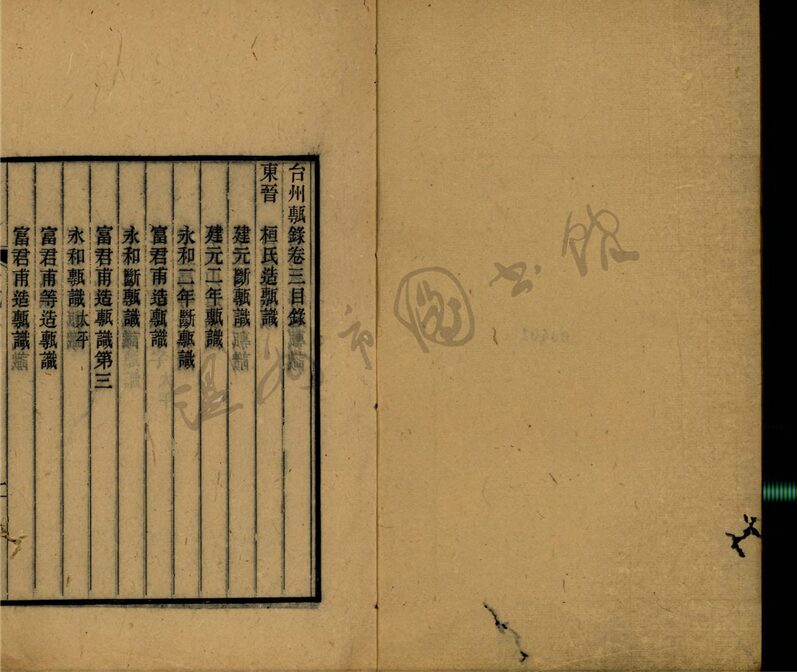 台州甎錄卷三目錄
東晉 桓氏造甎識
建元斷甎識
建元二年甎識
永和二年斷甎識
富君甫造甎識
永和斷甎識
富君甫造甎識第三
永和甎識 太平
富君甫等造甎識
富君甫造甎識
温州市圖书館